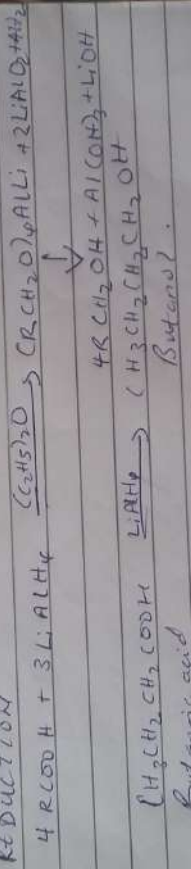 REDUCTION
4 RCOOH + 3LiAlH4 (C2H5)2O → (RCH2O)4AlLi + 2LiAlO2 + 4H2
↓
4RCH2OH + Al(OH)3 + LiOH
CH3CH2CH2COOH LiAlH4 → CH3CH2CH2CH2OH
Butanoic acid Butanol.